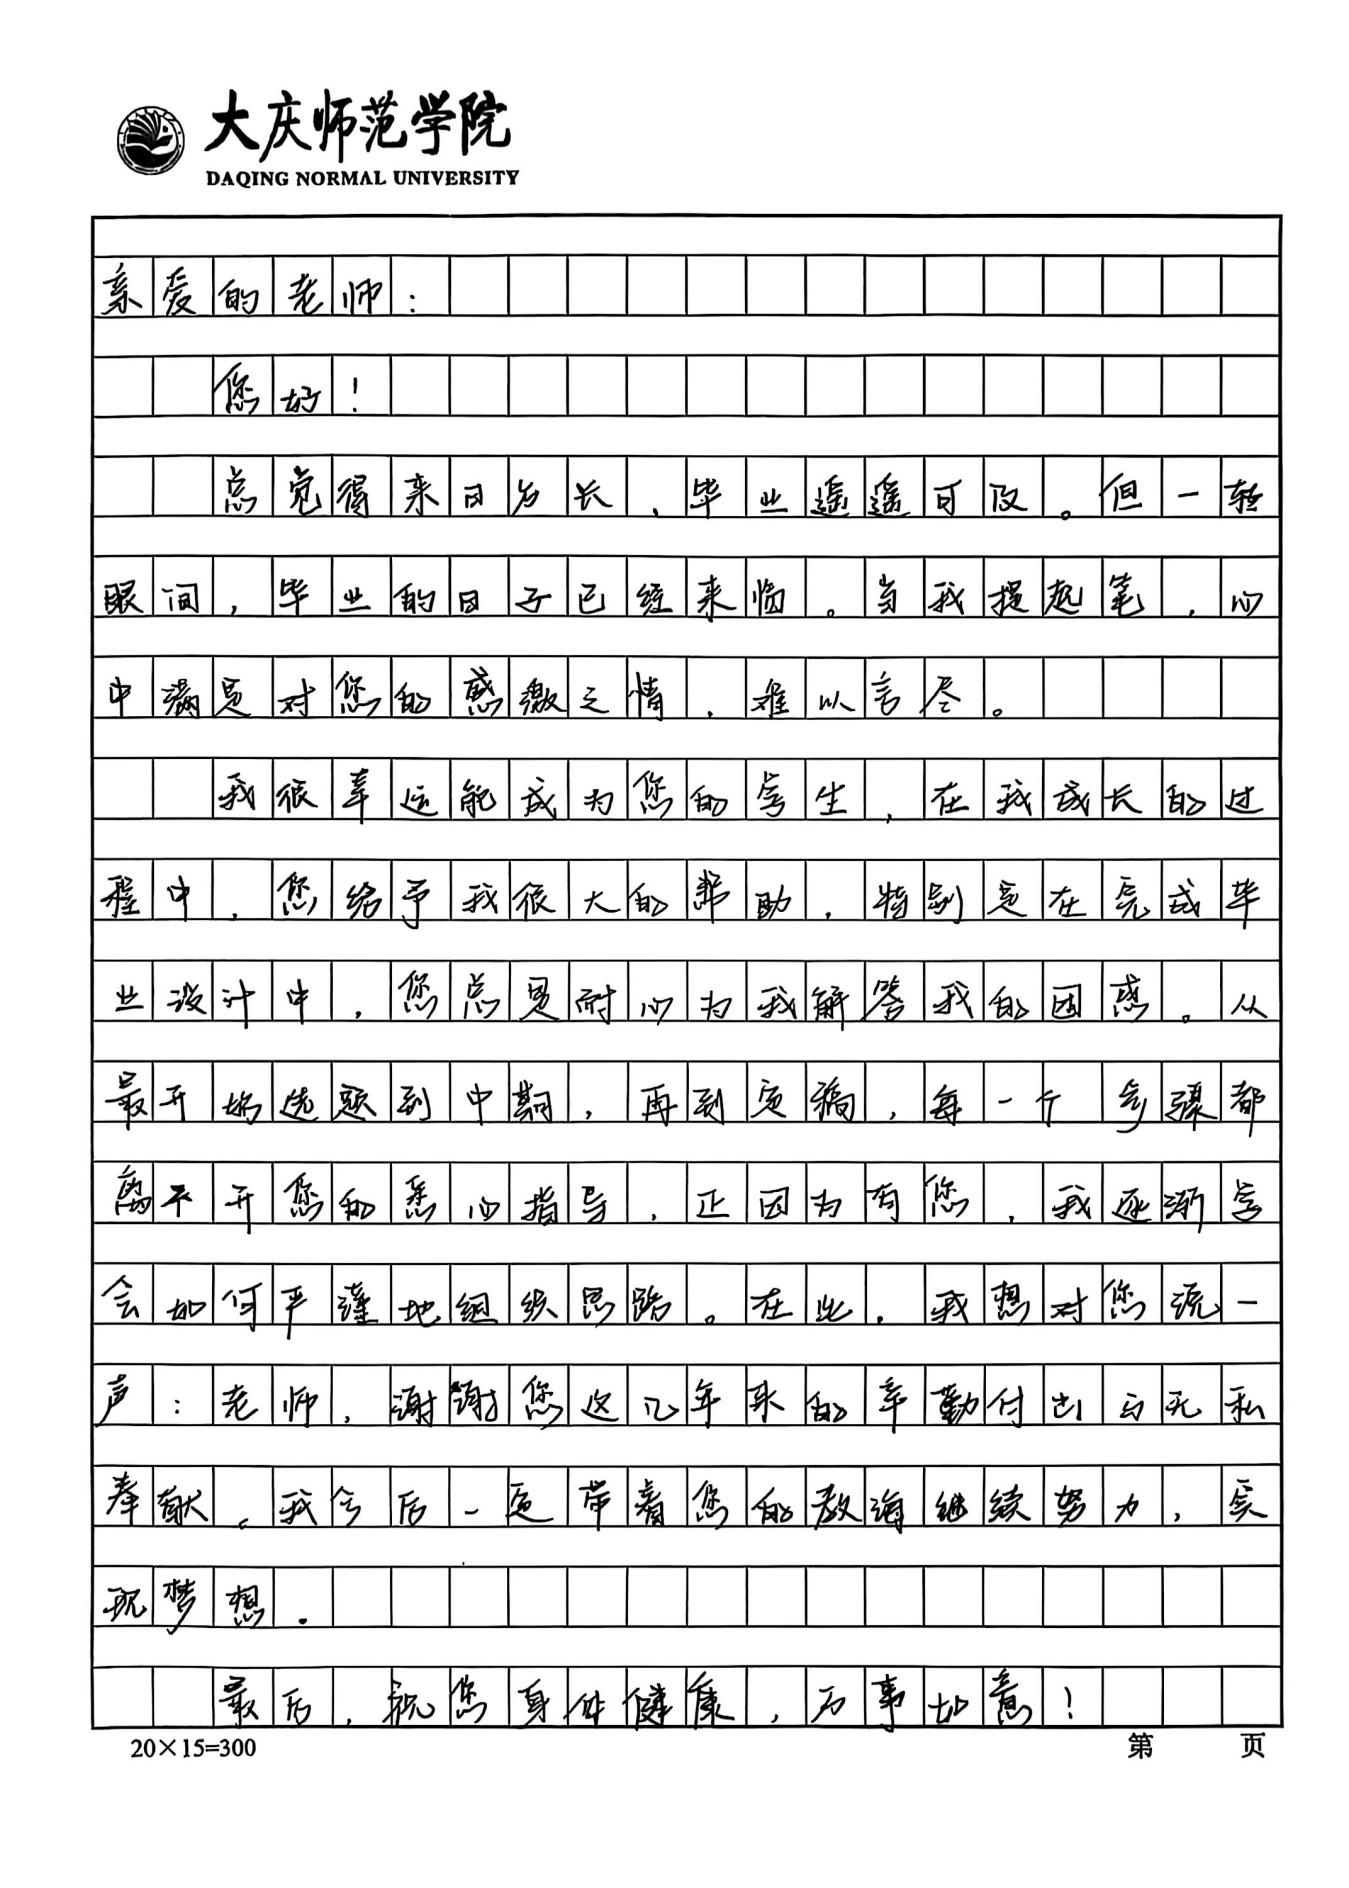 大庆师范学院
DAQING NORMAL UNIVERSITY
亲爱的老师：
您好！
总觉得来日方长，毕业遥遥可及。但一转
眼间，毕业的日子已经来临。当我提起笔，心
中满是对您的感激之情，难以言尽。
我很幸运能成为您的学生，在我成长的过
程中，您给予我很大的帮助，特别是在完成毕
业设计中，您总是耐心为我解答我的困惑。从
最开始选题到中期，再到定稿，每一个步骤都
离不开您的悉心指导，正因为有您，我逐渐学
会如何严谨地组织思路。在此，我想对您说一
声：老师，谢谢您这几年来的辛勤付出与无私
奉献。我今后一定带着您的教诲继续努力，实
现梦想。
最后，祝您身体健康，万事如意！
20×15=300
第 页